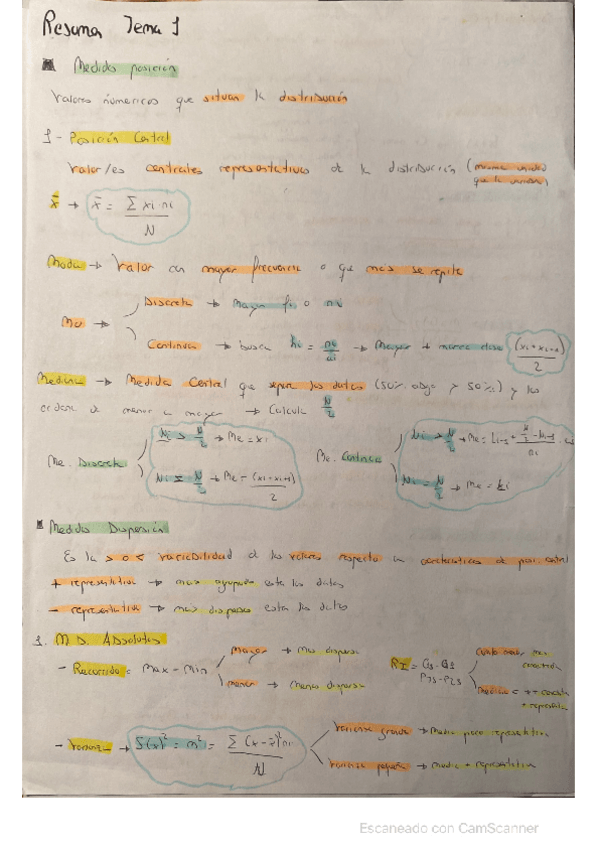 Resumen Tema 1
Medidas posición
Valores númericos que situan la distribución
1 - Posición Central
Valor/es centrales representativos de la distribución (misma unidad
que la variable)
x̄ → x̄ = Σ xi · ni / N
Moda → Valor con mayor frecuencia o que más se repite
Mo → Discreta → Mayor fi o ni
Continua → busca hi = ni/ai → Mayor + marca clase (xi + xi-1)/2
Mediana → Medida Central que separa los datos (50% abajo y 50%) y los
ordena de menor a mayor → Calcula N/2
Me. Discreta Ni > N/2 → Me = xi
Ni = N/2 → Me = (xi + xi+1)/2
Me. Continua Ni > N/2 → Me = Li-1 + N/2 - Ni-1 / ni
Ni = N/2 → Me = Li
Medidas Dispersión
Es la > o < variabilidad de los valores respecto
+ representativa → mas agrupados estan los datos
- representativa → mas dispersos estan los datos
1. M D. Absolutas
- Recorrido = Max - Min mayor → Mas dispersa
menor → Menos dispersa
RI = Q3 - Q1
P75 - P25
- Varianza → S(x)² = m² = Σ (x - x̄)² ni / N
Varianza grande → Media poco representativa
Varianza pequeña → media + representativa
Escaneado con CamScanner